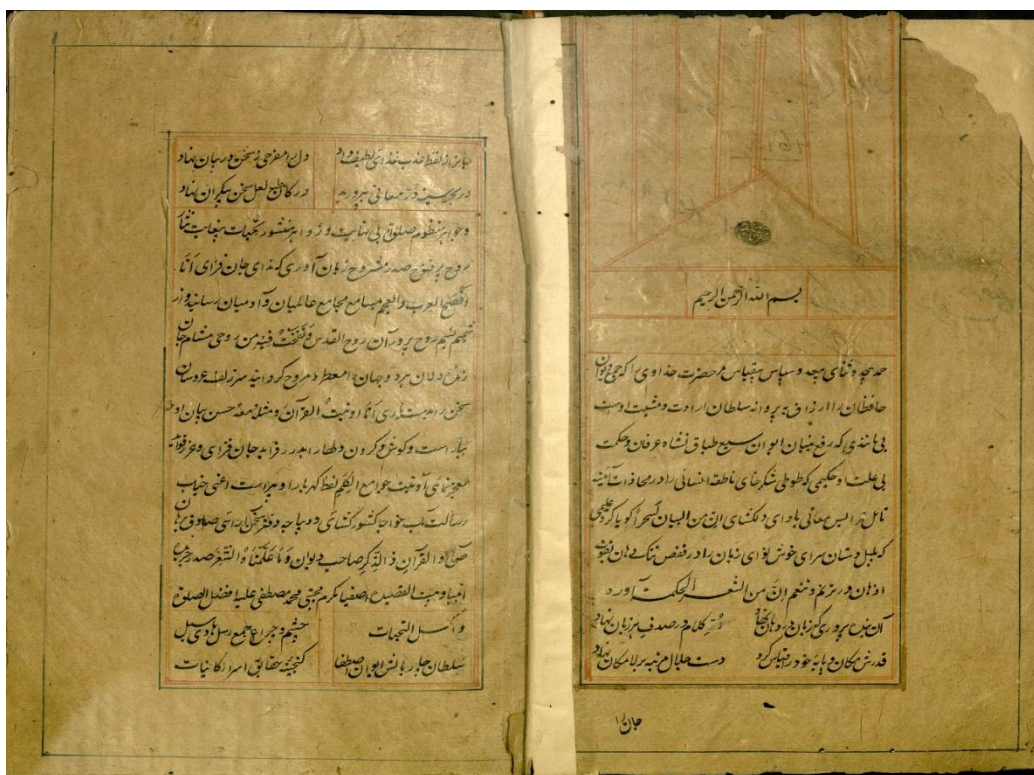 بسم الله الرحمن الرحیم
حمد بیحد و ثنای بیعد و سپاس بیقیاس مر حضرت خداوندی را که جمع دیوان
حافظان را ارزاق به پروانه سلطان ارادت و مشیت اوست
بی مانندی که رفع بنیان ایوان سبع طباق نشانه عرفان و حکمت
بی علت او حکیمی که طوطی شکرخای ناطقه انسانی را در محاذات آئینه
تامل نفایس معانی بادای دلکشای ان من البیان لسحرا گویا کرد علیمی
که بلبل دستان سرای خوش نوای زبان را در قفص تنگ دهان بقوت
اذهان در ترنم و تنعم ان من الشعر لحکمة آورد
آن پروری که زبان در دهان نهاد کلام در صدف هر زبان نهاد
قدرش مکان و پایه خود در قیاس کرد دست جلال مرتبه بر لامکان نهاد
جان را
جانرا ز لفظ عذب غذای لطیف داد دل را مفرحی ز سخن در بیان نهاد
در بحر سینه در معانی بپرورید در کان طبع لعل سخن بیکران نهاد
و جواهر منظوم صلوة بی نهایت و زواهر منثور تحیات بیغایت نثار
روح پرفتوح صدر مشروح زبان آوری که ندای جان فزای انا
افصح العرب والعجم بمسامع مجامع عالمیان و آدمیان رسانید و از
نسیم روح پرور آن روح القدس و نفخت فیه من روحی مشام جان
زنده دلان هر دو جهان را معطر و مروح گردانید سر زلف عروسان
سخن را بدستیاری انا اوتیت القرآن و مثله معه حسن بیان او
بیاراست و گوش و گردن را بدرر فواید جان فزای و غرر فواید
معجز نمای اوتیت جوامع الکلم لفظ گهربار او پیراست اعنی جناب
رسالت مآب خواجه کشور گشای و دیباجه دفتر سخن بارای صادق
ص والقرآن ذی الذکر صاحب دیوان و ما علمناه الشعر صدر جریده
انبیا و بیت القصیده اصفیا مکرم مجتبی محمد مصطفی علیه افضل الصلوة
و اکمل التحیات چشم و چراغ جمع رسل هادی سبل
سلطان چار بالش ایوان اصطفا گنجینه حقایق اسرار کاینات